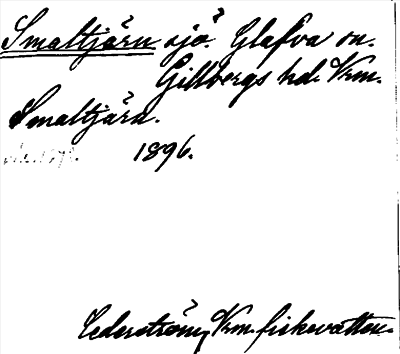 Smaltjärn sjö? Glafva sn.
Gillbergs hd. Vrm.
Smaltjärn.
1896.
Cederström, Vrm. fiskevatten.